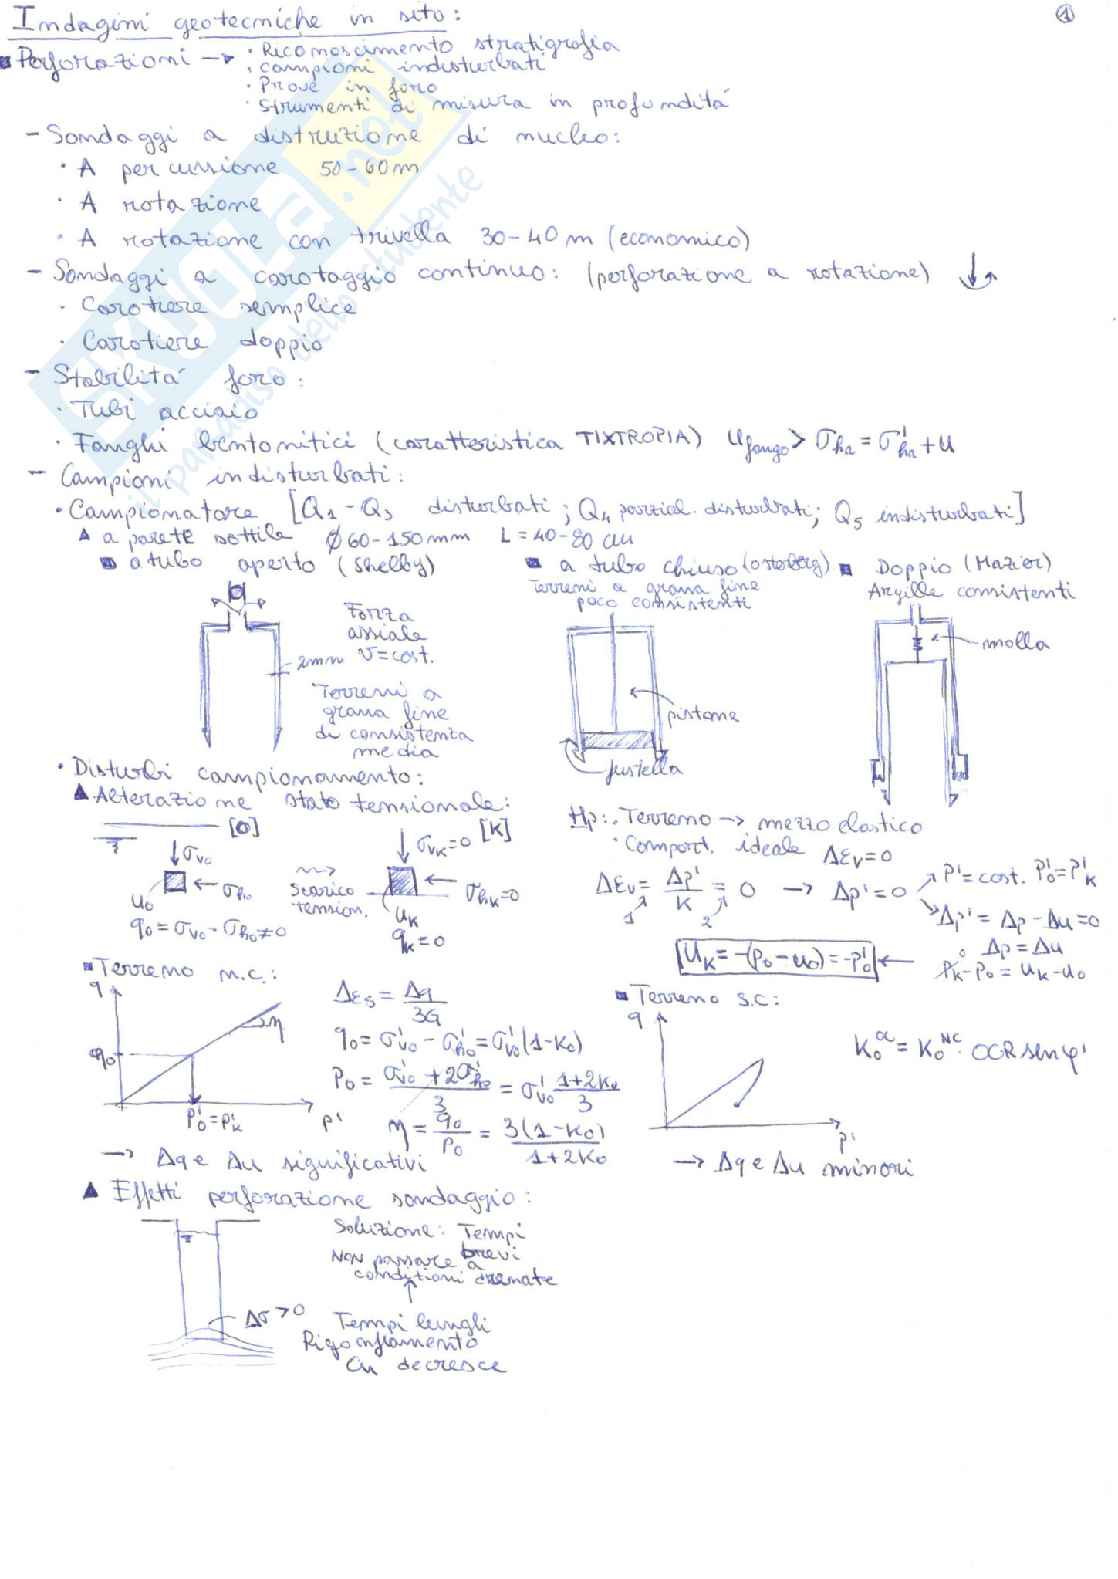 Indagini geotecniche in sito:
1
Perforazioni → · Riconoscimento stratigrafia
· campioni indisturbati
· Prove in foro
· Strumenti di misura in profondità
- Sondaggi a distruzione di nucleo:
· A percussione 50-60m
· A rotazione
· A rotazione con trivella 30-40m (economico)
- Sondaggi a carotaggio continuo: (perforazione a rotazione)
· Carotiere semplice
· Carotiere doppio
- Stabilità foro:
· Tubi acciaio
· Fanghi bentonitici (caratteristica TIXTROPIA) u_fango > σ_ho = σ'_ho + u
- Campioni indisturbati:
· Campionatore [Q1-Q3 disturbati; Q4 parzial. disturbati; Q5 indisturbati]
▲ a parete sottile Ø60-150mm L=40-80 cm
■ a tubo aperto (Shelby)
Forza assiale v=cost.
2mm
Terreni a grana fine di consistenza media
■ a tubo chiuso (osterberg)
Terreni a grana fine poco consistenti
pistone
fustella
■ Doppio (Mazier)
Argille consistenti
molla
· Disturbi campionamento:
▲ Alterazione stato tensionale:
[0]
σ_vo
σ_ho
u_o
q_o = σ_vo - σ_ho ≠ 0
scarico tension.
[K]
σ_vK = 0
σ_hK = 0
u_K
q_K = 0
Hp: · Terreno → mezzo elastico
· Comport. ideale Δε_v = 0
Δε_v = Δp'/K = 0 → Δp' = 0
1 2
p' = cost. p'_o = p'_K
Δp' = Δp - Δu = 0
Δp = Δu
p_K - p_o = u_K - u_o
u_K = -(p_o - u_o) = -p'_o
■ Terreno n.c.:
q
η
q_o
p'_o = p'_K
p'
Δε_s = Δq/3G
q_o = σ'_vo - σ'_ho = σ'_vo (1-K_o)
p_o = (σ'_vo + 2σ'_ho)/3 = σ'_vo (1+2K_o)/3
η = q_o/p_o = 3(1-K_o)/(1+2K_o)
→ Δq e Δu significativi
■ Terreno s.c.:
q
p'
K_o^oc = K_o^NC · OCR sen φ'
→ Δq e Δu minori
▲ Effetti perforazione sondaggio:
Δσ > 0
Soluzione: Tempi brevi
NON passare a condizioni drenate
Tempi lunghi
Rigonfiamento
cu decresce
SKUOLA.net
il paradiso dello studente